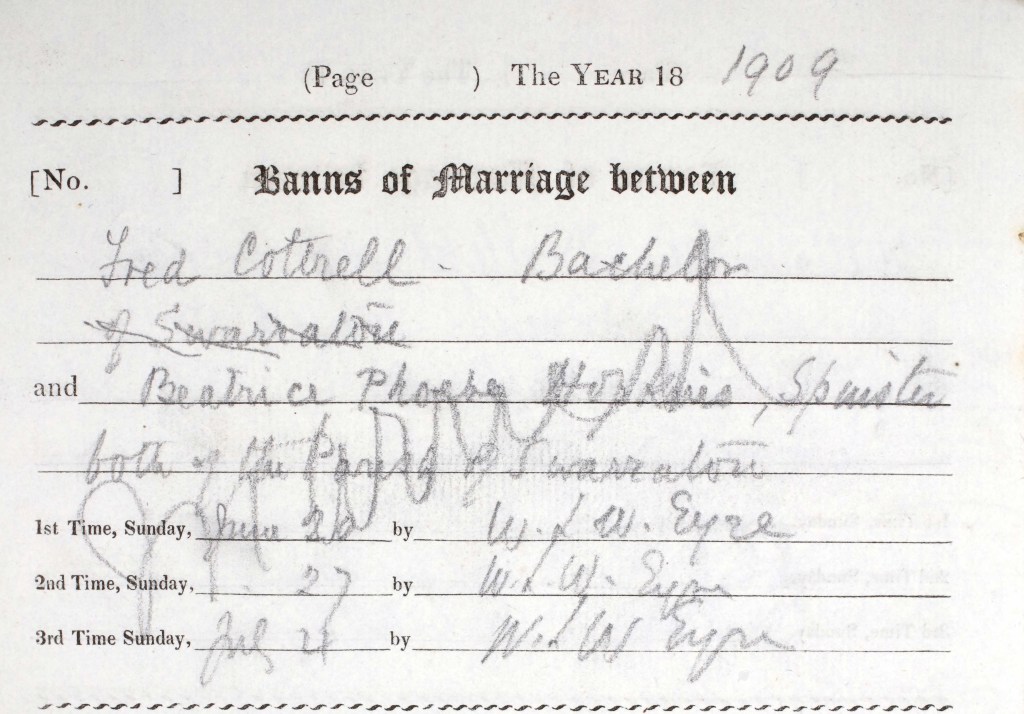 (Page ) The YEAR 18 1909
[No. ] Banns of Marriage between
Fred Cottrell - Bachelor
of Swarraton
and Beatrice Phoebe Hopkins, Spinster
both of the Parish of Swarraton
1st Time, Sunday, June 20 by W. L. W. Eyre
2nd Time, Sunday, 27 by W. L. W. Eyre
3rd Time Sunday, July 4 by W. L. W Eyre